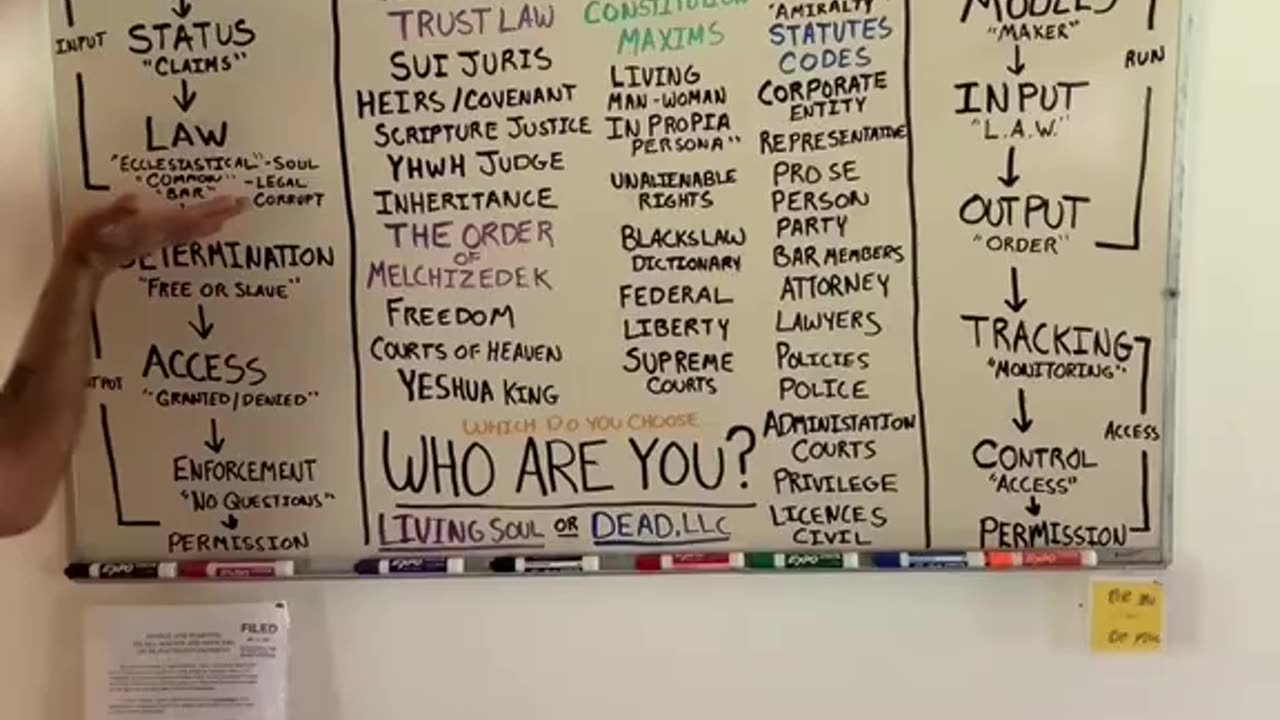 INPUT
STATUS
"CLAIMS"
LAW
"ECCLESTASTICAL" - SOUL
"COMMON" - LEGAL
"BAR" CORRUPT
DETERMINATION
"FREE OR SLAVE"
ACCESS
"GRANTED/DENIED"
ENFORCEMENT
"NO QUESTIONS"
PERMISSION
TRUST LAW
SUI JURIS
HEIRS/COVENANT
SCRIPTURE JUSTICE
YHWH JUDGE
INHERITANCE
THE ORDER
OF
MELCHIZEDEK
FREEDOM
COURTS OF HEAVEN
YESHUA KING
CONSTITUTION
MAXIMS
LIVING
MAN-WOMAN
IN PROPIA
PERSONA"
UNALIENABLE
RIGHTS
BLACKSLAW
DICTIONARY
FEDERAL
LIBERTY
SUPREME
COURTS
"AMIRALTY"
STATUTES
CODES
CORPORATE
ENTITY
REPRESENTATIVE
PRO SE
PERSON
PARTY
BAR MEMBERS
ATTORNEY
LAWYERS
POLICIES
POLICE
ADMINISTATION
COURTS
PRIVILEGE
LICENCES
CIVIL
WHICH DO YOU CHOOSE
WHO ARE YOU?
LIVING SOUL OR DEAD, LLC
MODELS
"MAKER"
RUN
INPUT
"L.A.W."
OUTPUT
"ORDER"
TRACKING
"MONITORING"
ACCESS
CONTROL
"ACCESS"
PERMISSION
EXPO
EXPO
EXPO
EXPO
EXPO
EXPO
FILED